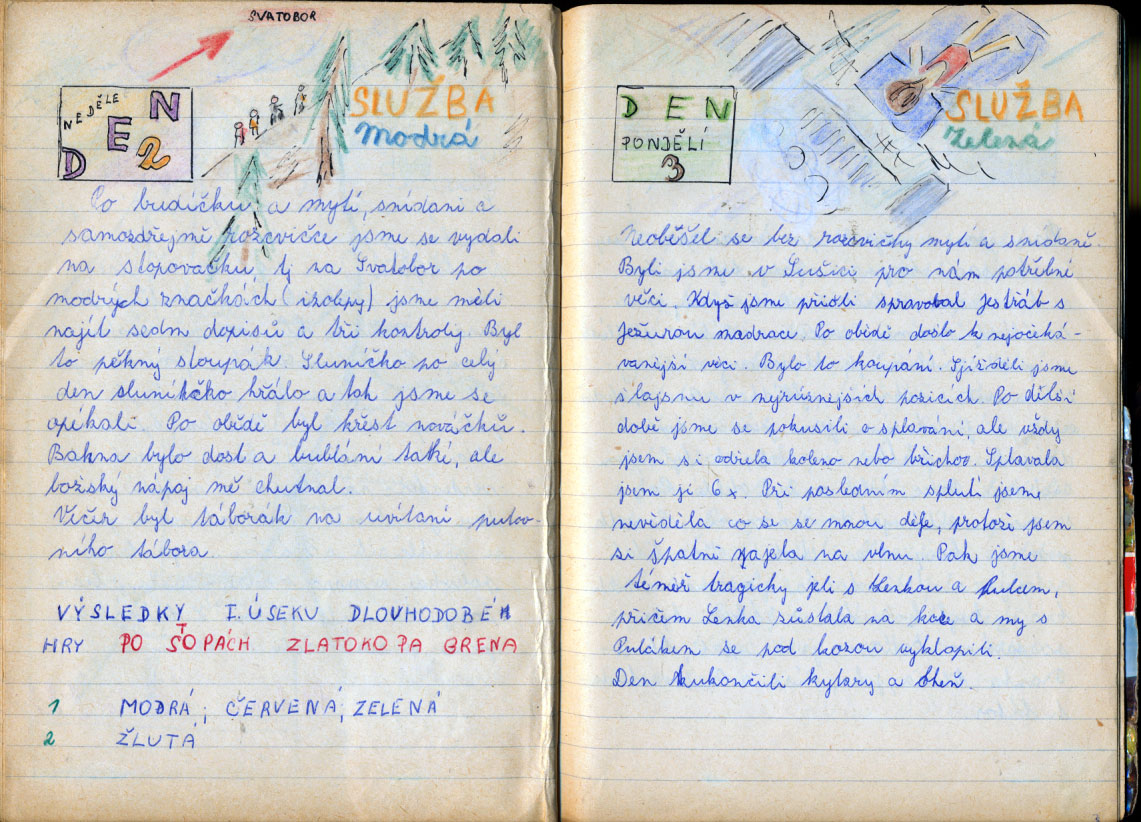 SVATOBOR
NEDĚLE
DEN
2
SLUŽBA
Modrá
Po budíčku a mytí, snídani a
samozdřejmě rozcvičce jsme se vydali
na stopovačku, tj na Svatobor po
modrých značkách (izolepy) jsme měli
najít sedm dopisů a tři kontroly. Byl
to pěkný stoupák. Sluníčko po celý
den hřálo a tak jsme se
opékali. Po obědě byl křest nováčků.
Bahna bylo dost a bublání také, ale
božský nápoj mě chutnal.
Večer byl táborák na uvítaní putov-
ního tábora.
VÝSLEDKY I. ÚSEKU DLOUHODOBÉ
HRY PO STOPÁCH ZLATOKOPA BRENA
1 MODRÁ, ČERVENÁ, ZELENÁ
2 ŽLUTÁ
DEN
PONDĚLÍ
3
SLUŽBA
Zelená
Neoběšel se bez rozcvičky mytí a snídaně.
Byli jsme v Sušici pro nám potřebné
věci. Když jsme přišli spravoval Jestřáb s
Ježurou madrace. Po obědě došlo k nejočeká-
vanější věci. Bylo to koupání. Sjížděli jsme
šlajsnu v nejrůznějších pozicích. Po dělší
době jsme se pokusili o splavání, ale vždy
jsem si odřela koleno nebo břicho. Splavala
jsem ji 6x. Při posledním splutí jseme
nevěděla co se se mnou děje, protože jsem
si špatně najela na vlnu. Pak jsme
téměř tragicky jeli s Lenkou a Pulcem,
přičem Lenka zůstala na koze a my s
Pulákem se pod kozou vyklopili.
Den ukončili kytary a oheň.